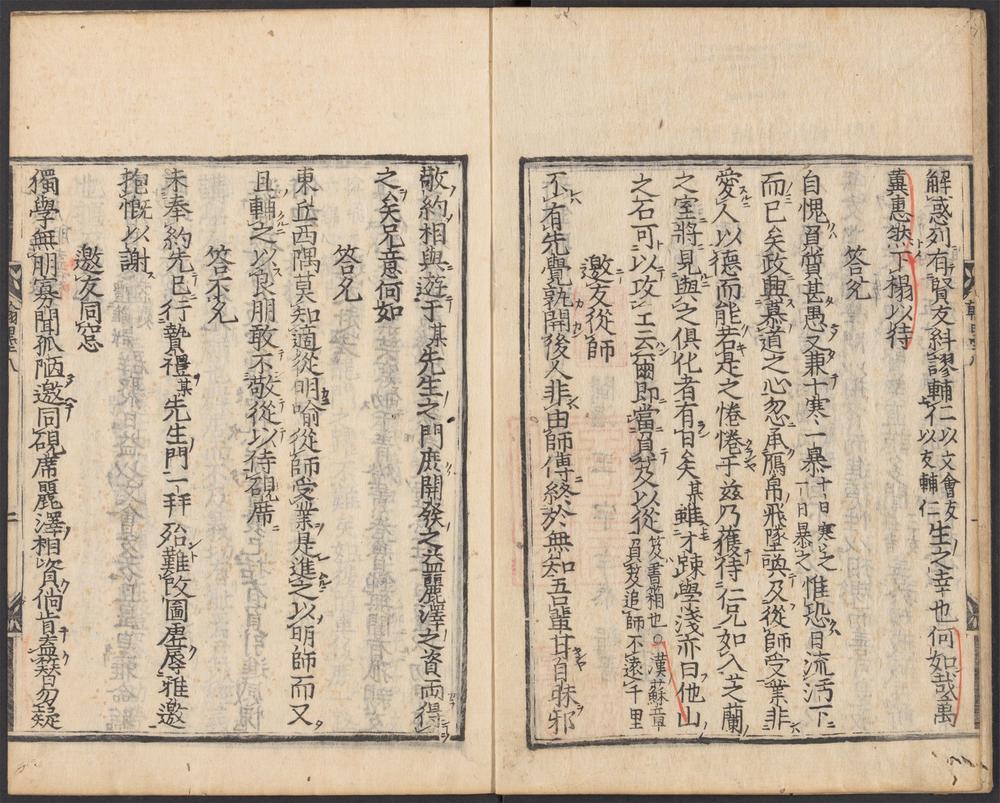 解惑列有賢友糾謬輔仁以文會友以友輔仁生之幸也何如哉萬
冀惠然下榻以待
答允
自愧負質甚愚又兼十寒一暴十日寒之一日暴之惟恐日流汚下
而已矣政興慕道之心忽承鴈帛飛墜喚及從師受業非
愛人以德而能若是之惓惓乎兹乃獲待仁兄如入芝蘭
之室將見與之俱化者有日矣某雖才踈學淺亦曰他山
之石可以攻玉云爾即當負笈以從笈書箱也○漢蘇章負笈追師不遠千里
邀友從師
不有先覺孰開後人非由師傅終於無知吾輩甘自昧邪
敬約相與遊于某先生之門庶開發之益麗澤之資両得
之矣兄意何如
答允
東丘西隅莫知適從明喻從師受業是進之以明師而又
且輔之以良朋敢不敬從以待硯席
答不允
未奉約先已行贄禮某先生門一拜殆難改圖虚辱雅邀
抱慨以謝
邀友同窓
獨學無朋寡聞孤陋邀同硯席麗澤相資倘肯盍簪易疑